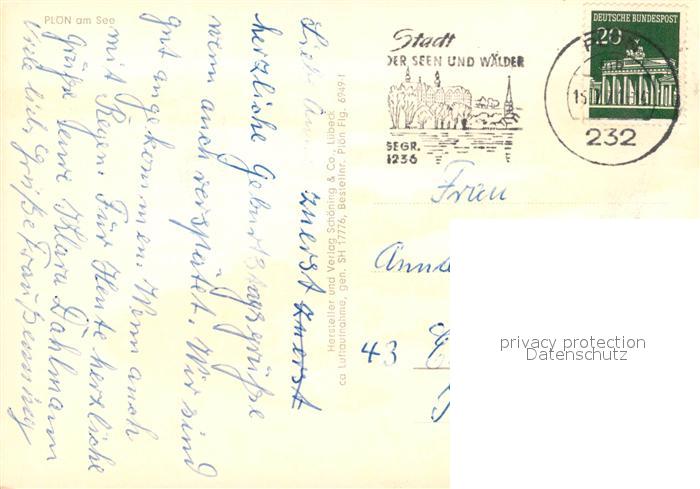 PLÖN am See
Liebe Anni zuerst zuerst
herzliche Geburtstagsgrüße
wenn auch verspätet. Wir sind
gut angekommen. Wenn auch
mit Regen. Für Heute herzliche
Grüße deine Klara Dahlmann
viele lieb. Grüße Frau
Hersteller und Verlag Schöning & Co., Lübeck
ca Luftaufnahme, gen. SH 17776, Bestellnr. Plön Flg. 6949-1
Stadt
DER SEEN UND WÄLDER
SEGR.
1236
DEUTSCHE BUNDESPOST
20
232
Frau
43
privacy protection
Datenschutz